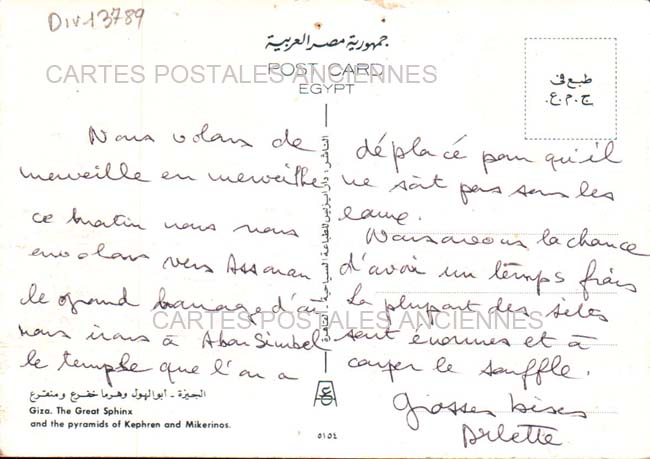 Div 13789
جمهورية مصر العربية
CARTES POSTALES ANCIENNES
POST CARD
EGYPT
طبع فى
ج.م.ع.
Nous volons de
merveille en merveille
ce matin nous nous
envolons vers Assouan
le grand barrage d'où
nous irons à Abou Simbel
le temple que l'on a
déplacé pour qu'il
ne soit pas sous les
eaux.
Nous avons la chance
d'avoir un temps frais
La plupart des sites
sont énormes et à
couper le souffle.
Grosses bises
Arlette
CARTES POSTALES ANCIENNES
الجيزة - أبو الهول وهرما خفرع و منقرع
Giza. The Great Sphinx
and the pyramids of Kephren and Mikerinos.
0102